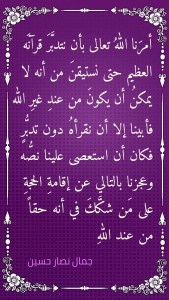 أمرَنا اللهُ تعالى بأن نتدبَّرَ قرآنَه
العظيم حتى نستيقنَ من أنه لا
يمكنُ أن يكونَ من عندِ غيرِ الله
فأبينا إلا أن نقرأهُ دون تدبُّرٍ
فكان أن استعصى علينا نصُّه
وعجزنا بالتالي عن إقامةِ الحجةِ
على مَن شكَّكَ في أنه حقاً
من عند الله
جمال نصار حسين